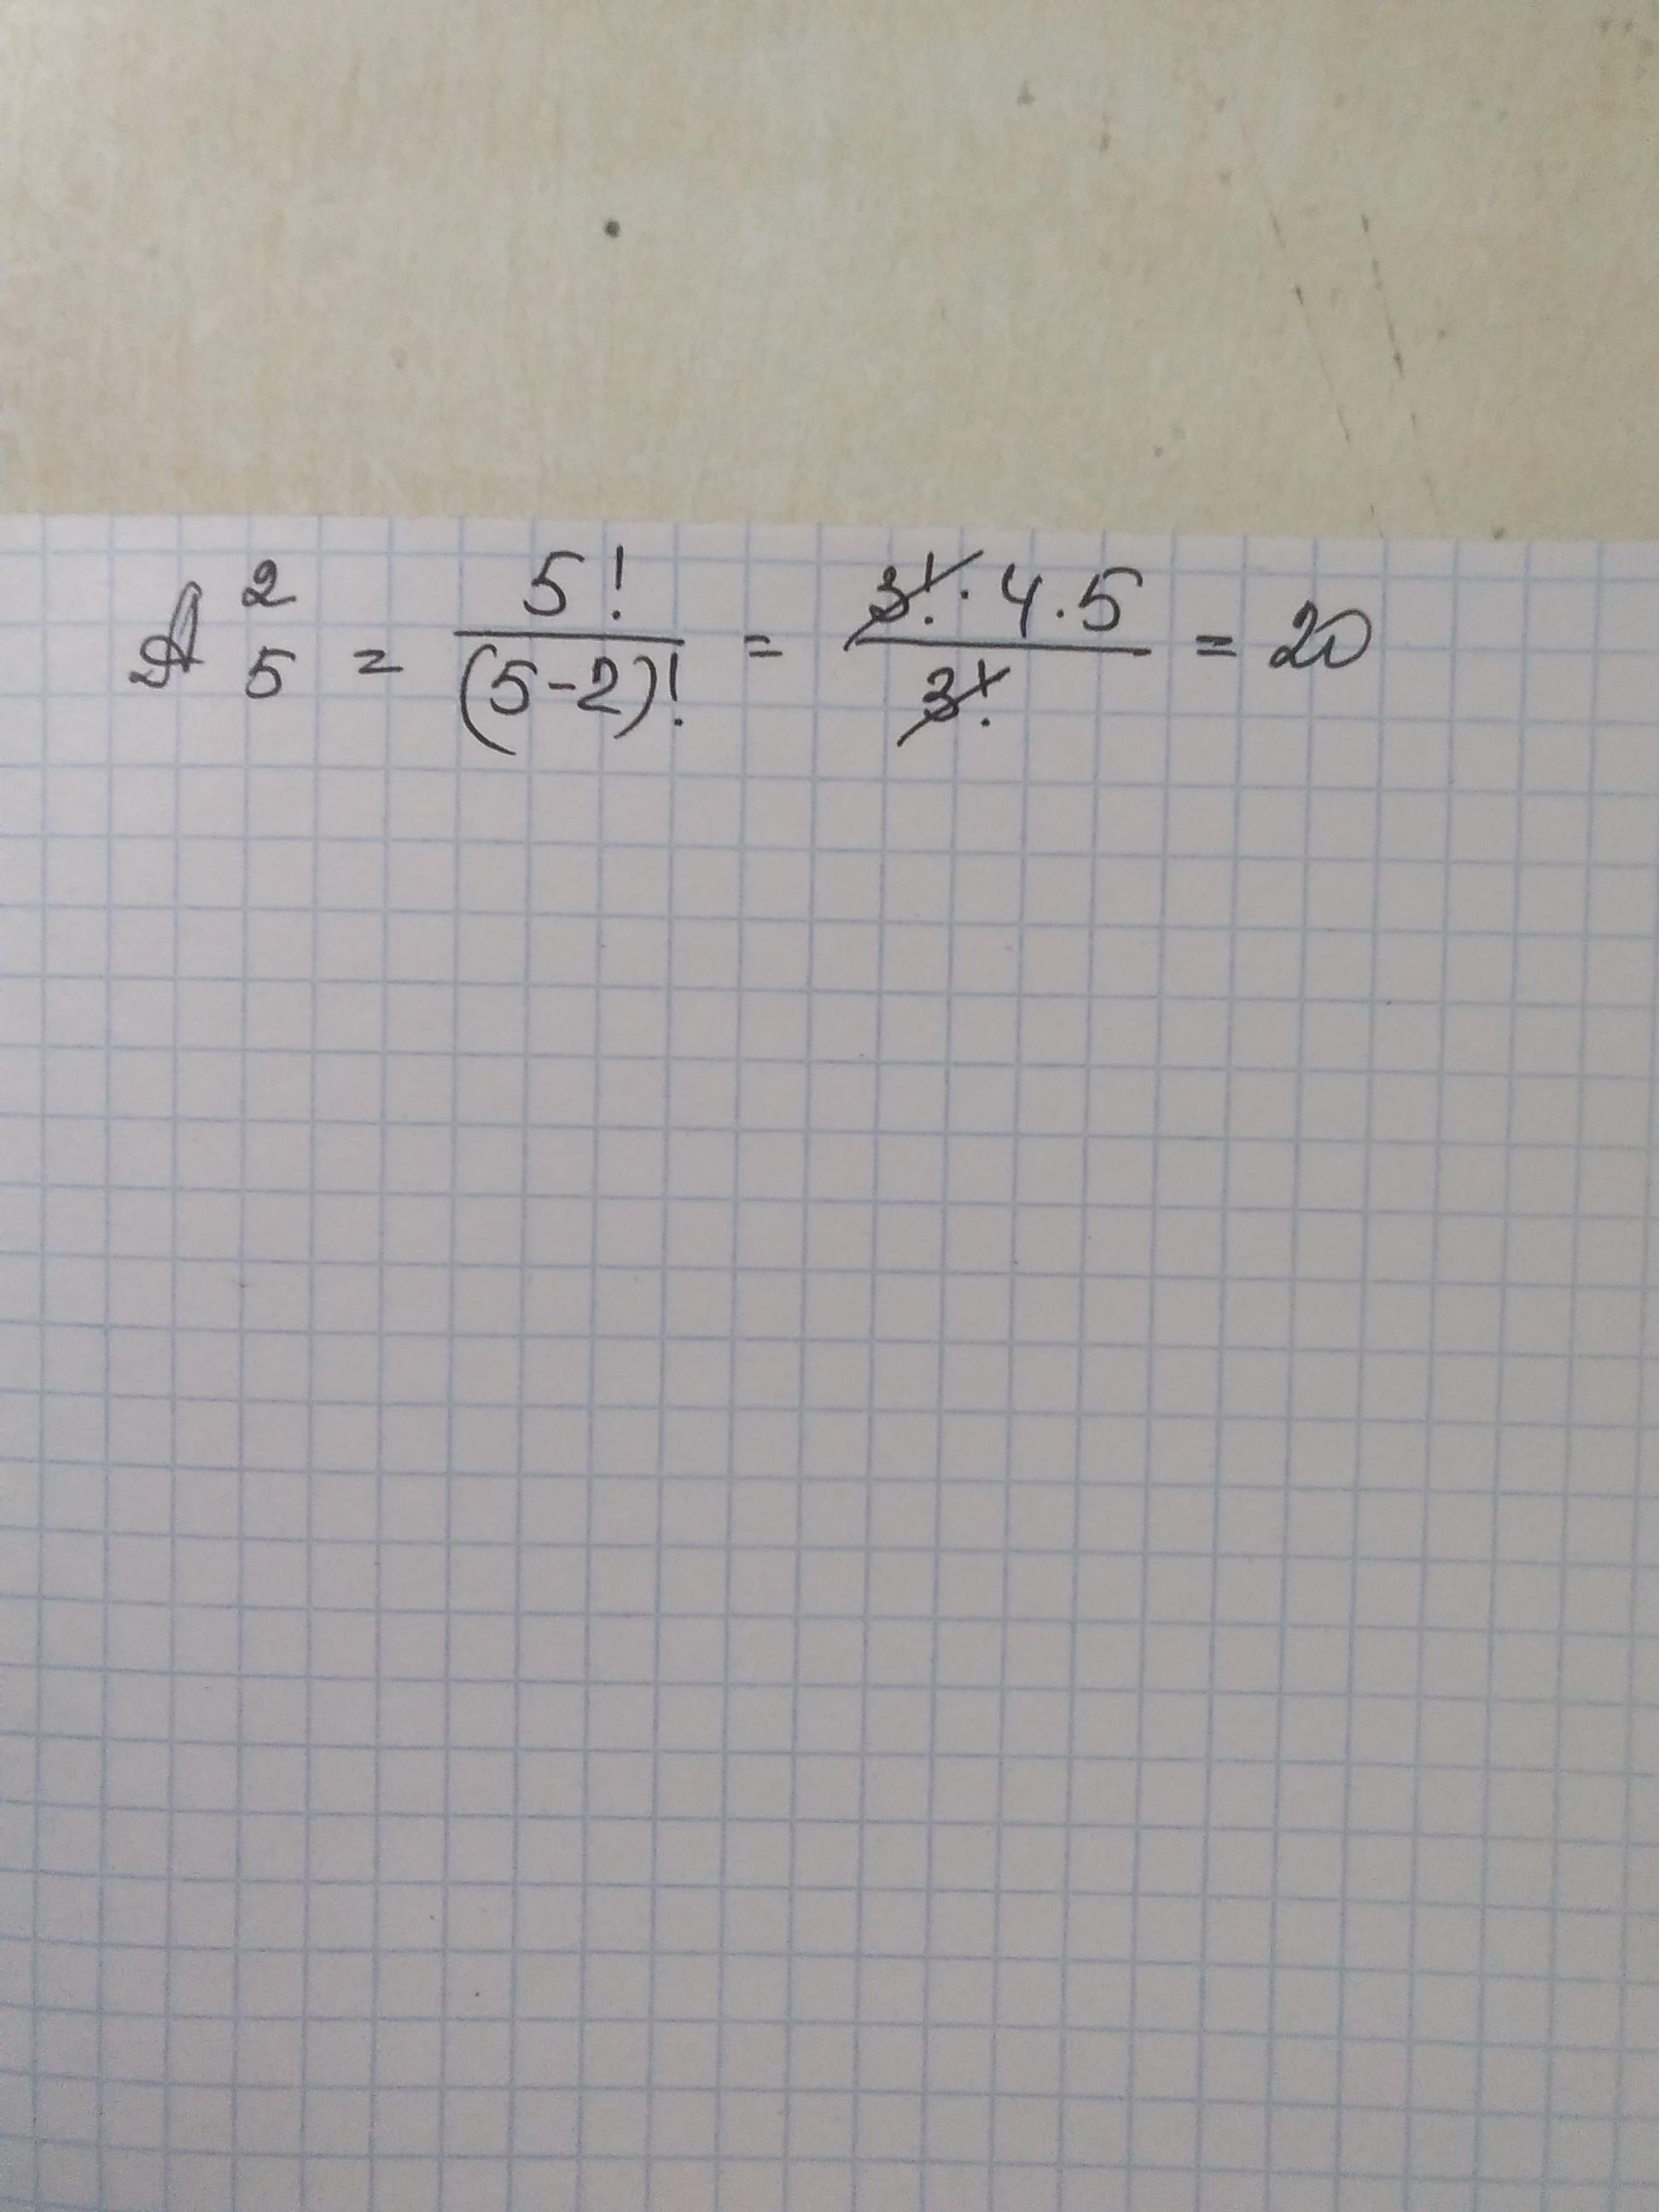 A₅² = 5!/(5-2)! = 3!·4·5/3! = 20